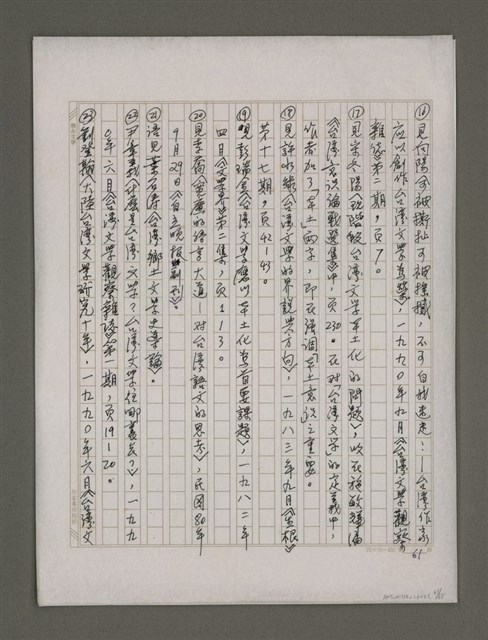 ⑯見向陽〈可被撕扯可被揉搓，不可自我迷走：—台灣作家
應以創作台灣文學為榮〉，一九九〇年九月《台灣文學觀察
雜誌》第二期，頁7。
⑰見宋冬陽〈現階段台灣文學本土化的問題〉，收在施敏輝編
《台灣意識論戰選集》中，頁230。在對「台灣文學」的定義中，
作者加了「本土」兩字，即在強調「本土意識」之重要。
⑱見許水綠〈台灣文學的界說與方向〉，一九八三年九月《生根》
第十七期，頁42－43。
⑲見彭瑞金〈台灣文學應以本土化為首要課題〉，一九八二年
四月《文學界》第二集，頁113。
⑳見李喬〈寬廣的語言大道—對台灣語文的思考〉，民國80年
9月29日《自立晚報副刊》。
㉑語見葉石濤〈台灣鄉土文學史導論〉。
㉒尹章義〈什麼是台灣文學？台灣文學往哪裏去？〉，一九九
〇年六月《台灣文學觀察雜誌》第一期，頁19－20。
㉓劉登翰〈大陸台灣文學研究十年〉，一九九〇年六月《台灣文
61